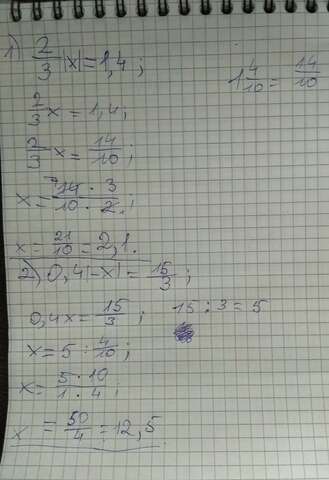 1) 2/3 |x| = 1,4;
1 4/10 = 14/10
2/3 x = 1,4;
2/3 x = 14/10;
x = 14 · 3 / 10 · 2;
x = 21/10 = 2,1.
2) 0,4|-x| = 15/3;
0,4x = 15/3; 15 : 3 = 5
x = 5 : 4/10;
x = 5 · 10 / 1 · 4;
x = 50/4 = 12,5